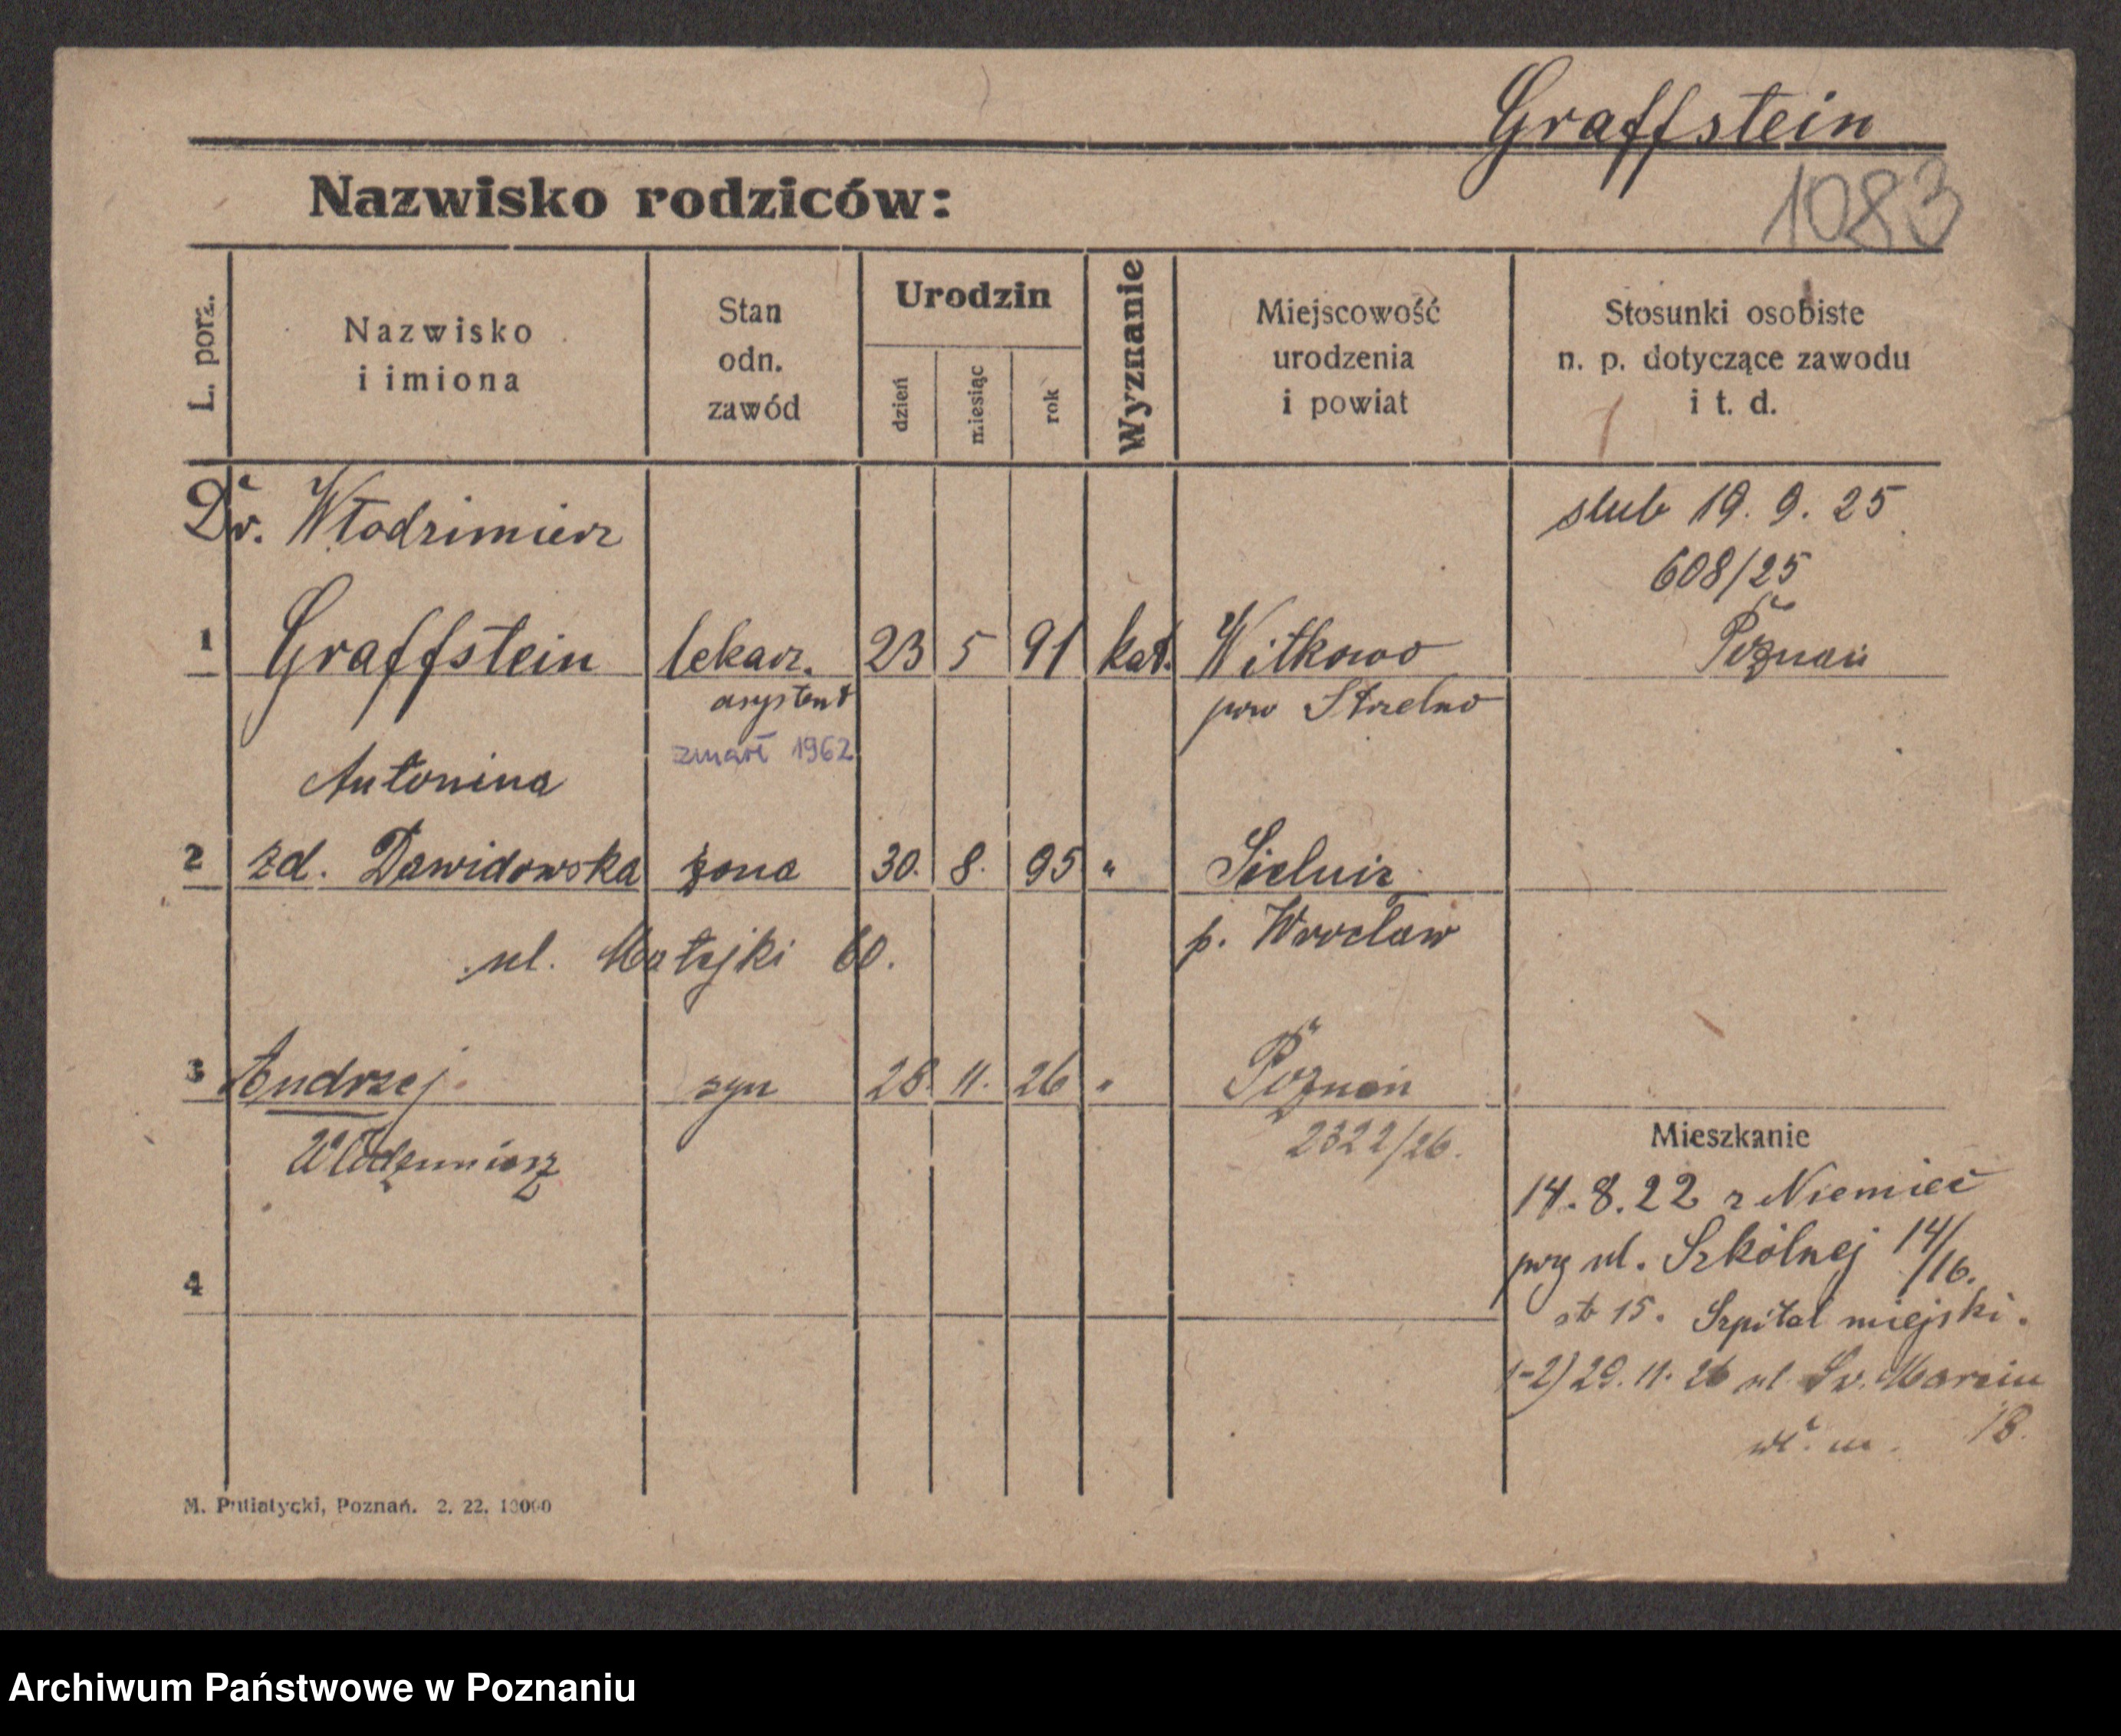 Graffstein
1083
Nazwisko rodziców:
L. porz.
Nazwisko
i imiona
Stan
odn.
zawód
Urodzin
dzień
miesiąc
rok
Wyznanie
Miejscowość
urodzenia
i powiat
Stosunki osobiste
n. p. dotyczące zawodu
i t. d.
Dr. Włodzimierz
slub 19. 9. 25
608/25
1 Graffstein lekarz. 23 5 91 kat. Witkowo Poznań
asystent pow Strzelno
zmarł 1962
Antonina
2 zd. Dawidowska żona 30. 8. 95 "
p. Wrocław
ul. Matejki 60.
3 Andrzej syn 28. 11. 26 " Poznań
Włodzimierz 2322/26.
Mieszkanie
14.8.22 z Niemiec
przy ul. Szkólnej 14/16.
4
15. Szpital miejski.
1-2) 29. 11. 26 ul Św. Marcin
18.
M. Putiatycki, Poznań. 2. 22. 10000
Archiwum Państwowe w Poznaniu